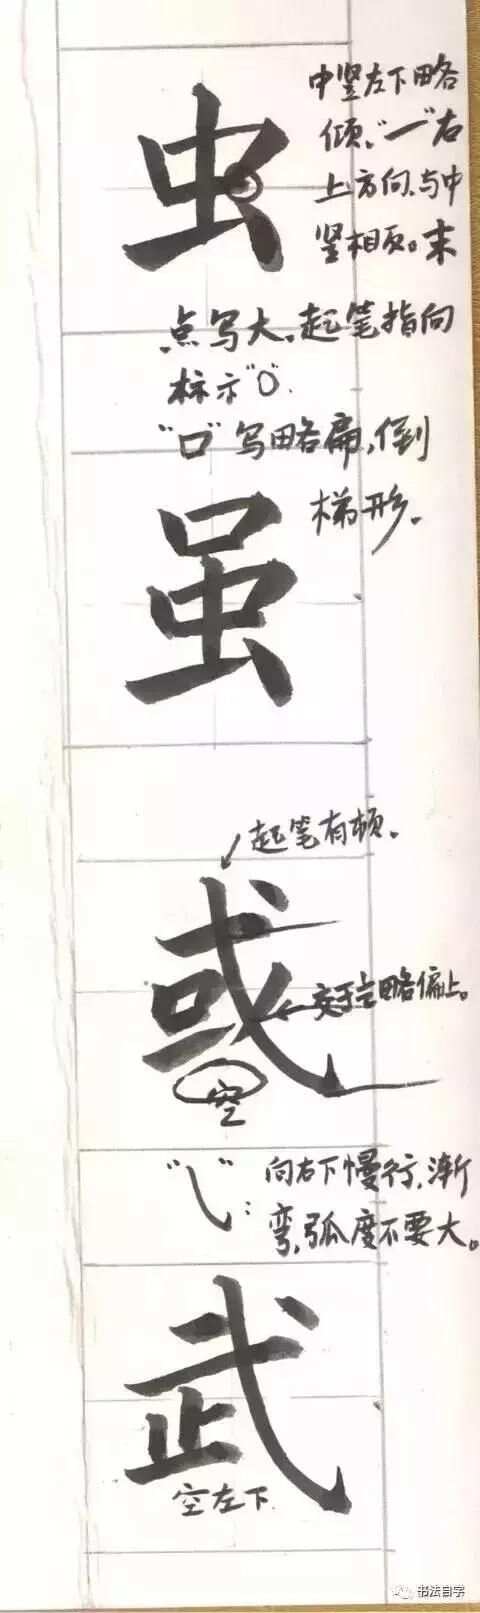 中竖左下略
倾，“㇀”右
上方向，与中
竖相反。末
虫
点写大，起笔指向
标示“0”.
“口”写略扁，倒
梯形。
虽
起笔有顿。
或
交于略偏上。
空
“㇂”：向右下慢行，渐
弯，弧度不要大。
武
空左下
书法自学